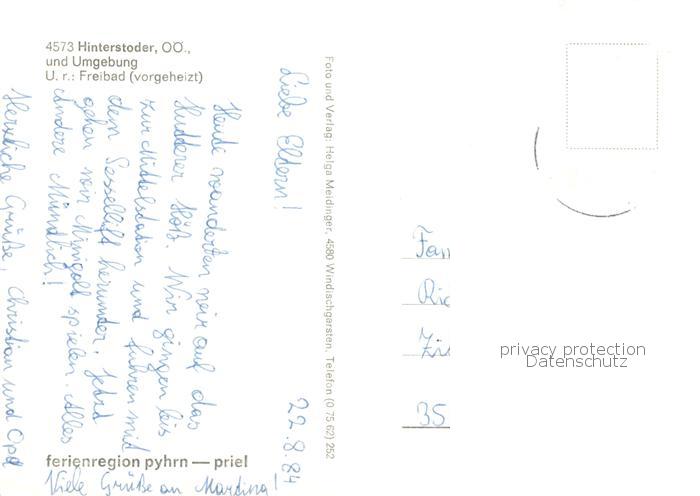 4573 Hinterstoder, OÖ.,
und Umgebung
U. r.: Freibad (vorgeheizt)
22.8.84
Liebe Eltern!
Heute wanderten wir auf das
Hutterer Höß. Wir gingen bis
zur Mittelstation und fuhren mit
dem Sessellift herunter. Jetzt
gehen wir Minigolf spielen. Alles
Andere Mündlich!
Herzliche Grüße, Christian und Opa
Viele Grüße an Martina!
ferienregion pyhrn — priel
Foto und Verlag: Helga Meidinger, 4580 Windischgarsten, Telefon (0 75 62) 252
Fam
Ri
Zi
35
privacy protection
Datenschutz